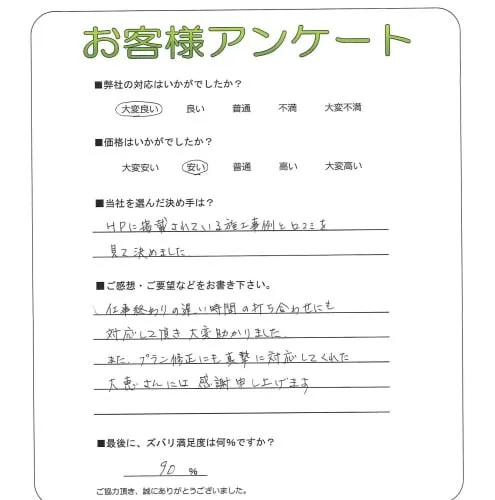 お客様アンケート
■弊社の対応はいかがでしたか？
大変良い 良い 普通 不満 大変不満
■価格はいかがでしたか？
大変安い 安い 普通 高い 大変高い
■当社を選んだ決め手は？
HPに掲載されている施工事例と口コミを
見て決めました
■ご感想・ご要望などをお書き下さい。
仕事終わりの遅い時間の打ち合わせにも
対応して頂き大変助かりました。
また、プラン修正にも真摯に対応してくれた
大恵さんには感謝申し上げます
■最後に、ズバリ満足度は何％ですか？
90 ％
ご協力頂き、誠にありがとうございました。